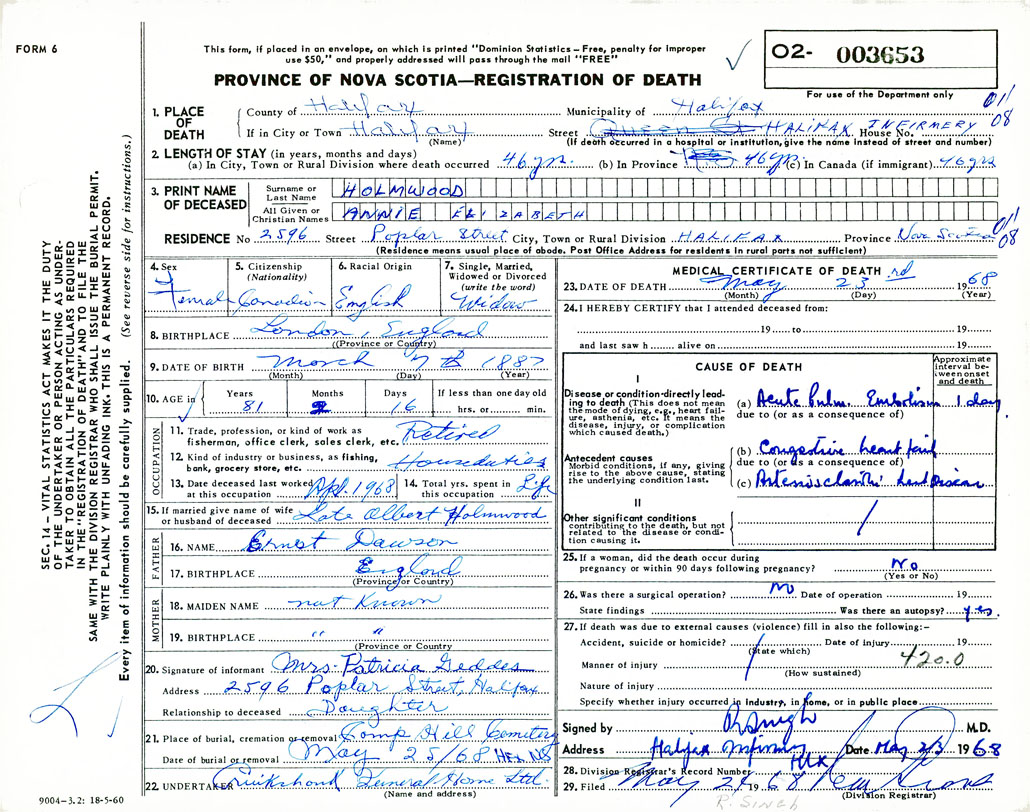 FORM 6
This form, if placed in an envelope, on which is printed "Dominion Statistics—Free, penalty for improper
use $50," and properly addressed will pass through the mail "FREE"
PROVINCE OF NOVA SCOTIA—REGISTRATION OF DEATH
O2- 003653
For use of the Department only
1. PLACE OF DEATH
County of Halifax Municipality of Halifax
If in City or Town Halifax Street HALIFAX INFIRMERY House No.
(Name) (If death occurred in a hospital or institution, give the name instead of street and number)
01/08
2. LENGTH OF STAY (in years, months and days)
(a) In City, Town or Rural Division where death occurred 46 yrs. (b) In Province 46 yrs (c) In Canada (if immigrant) 46 yrs
3. PRINT NAME OF DECEASED
Surname or Last Name HOLMWOOD
All Given or Christian Names ANNIE ELIZABETH
RESIDENCE No 2596 Street Poplar Street City, Town or Rural Division HALIFAX Province Nova Scotia
01/08
(Residence means usual place of abode. Post Office Address for residents in rural parts not sufficient)
4. Sex Female
5. Citizenship (Nationality) Canadian
6. Racial Origin English
7. Single, Married, Widowed or Divorced (write the word) Widow
8. BIRTHPLACE London, England
(Province or Country)
9. DATE OF BIRTH March 7th 1887
(Month) (Day) (Year)
10. AGE in Years 81 Months 2 Days 16 If less than one day old hrs. or min.
OCCUPATION
11. Trade, profession, or kind of work as fisherman, office clerk, sales clerk, etc. Retired
12. Kind of industry or business, as fishing, bank, grocery store, etc. Houseduties
13. Date deceased last worked at this occupation Apl. 1968
14. Total yrs. spent in this occupation Life
15. If married give name of wife or husband of deceased Late Albert Holmwood
FATHER
16. NAME Ernest Dawson
17. BIRTHPLACE England
(Province or Country)
MOTHER
18. MAIDEN NAME not Known
19. BIRTHPLACE " "
(Province or Country
20. Signature of informant Mrs. Patricia Geddes
Address 2596 Poplar Street, Halifax
Relationship to deceased Daughter
21. Place of burial, cremation or removal Camp Hill Cemetery
Date of burial or removal May 25/68 Hfx. NS
22. UNDERTAKER Cruikshank Funeral Home Ltd.
(Name and address)
MEDICAL CERTIFICATE OF DEATH
23. DATE OF DEATH May 23rd 1968
(Month) (Day) (Year)
24. I HEREBY CERTIFY that I attended deceased from:
19 to 19
and last saw h alive on 19
CAUSE OF DEATH
Approximate interval between onset and death
I
Disease or condition directly leading to death (This does not mean the mode of dying, e.g., heart failure, asthenia, etc. It means the disease, injury, or complication which caused death.)
(a) Acute Pulm. Embolism 1 day
due to (or as a consequence of)
Antecedent causes
Morbid conditions, if any, giving rise to the above cause, stating the underlying condition last.
(b) Congestive heart fail
due to (or as a consequence of)
(c)
II
Other significant conditions
contributing to the death, but not related to the disease or condition causing it.
25. If a woman, did the death occur during pregnancy or within 90 days following pregnancy? No
(Yes or No)
26. Was there a surgical operation? no Date of operation 19
State findings Was there an autopsy? yes.
27. If death was due to external causes (violence) fill in also the following:—
Accident, suicide or homicide? Date of injury 19
(State which)
420.0
Manner of injury
(How sustained)
Nature of injury
Specify whether injury occurred in Industry, in home, or in public place.
Signed by R Singh M.D.
Address Halifax Infirmary Date May 23 1968
Hfx
28. Division Registrar's Record Number
29. Filed May 1968
(Division Registrar)
R. SINGH
SEC. 14 – VITAL STATISTICS ACT MAKES IT THE DUTY
OF THE UNDERTAKER OR PERSON ACTING AS UNDER-
TAKER TO OBTAIN ALL THE PARTICULARS REQUIRED
IN THE "REGISTRATION OF DEATH" AND TO FILE THE
SAME WITH THE DIVISION REGISTRAR WHO SHALL ISSUE THE BURIAL PERMIT.
WRITE PLAINLY WITH UNFADING INK. THIS IS A PERMANENT RECORD.
Every item of information should be carefully supplied. (See reverse side for instructions.)
9004–3.2: 18-5-60